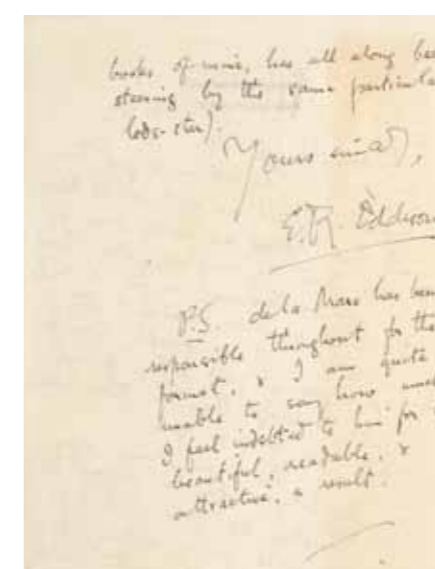 books of mine, has all along bee
steering by the same particula
lode-star).
Yours
E.R. Eddison
P.S. de la Mare has been
responsible throughout for the
format, & I am quite
unable to say how
I feel indebted to him for
beautiful, readable, &
attractive, a result.